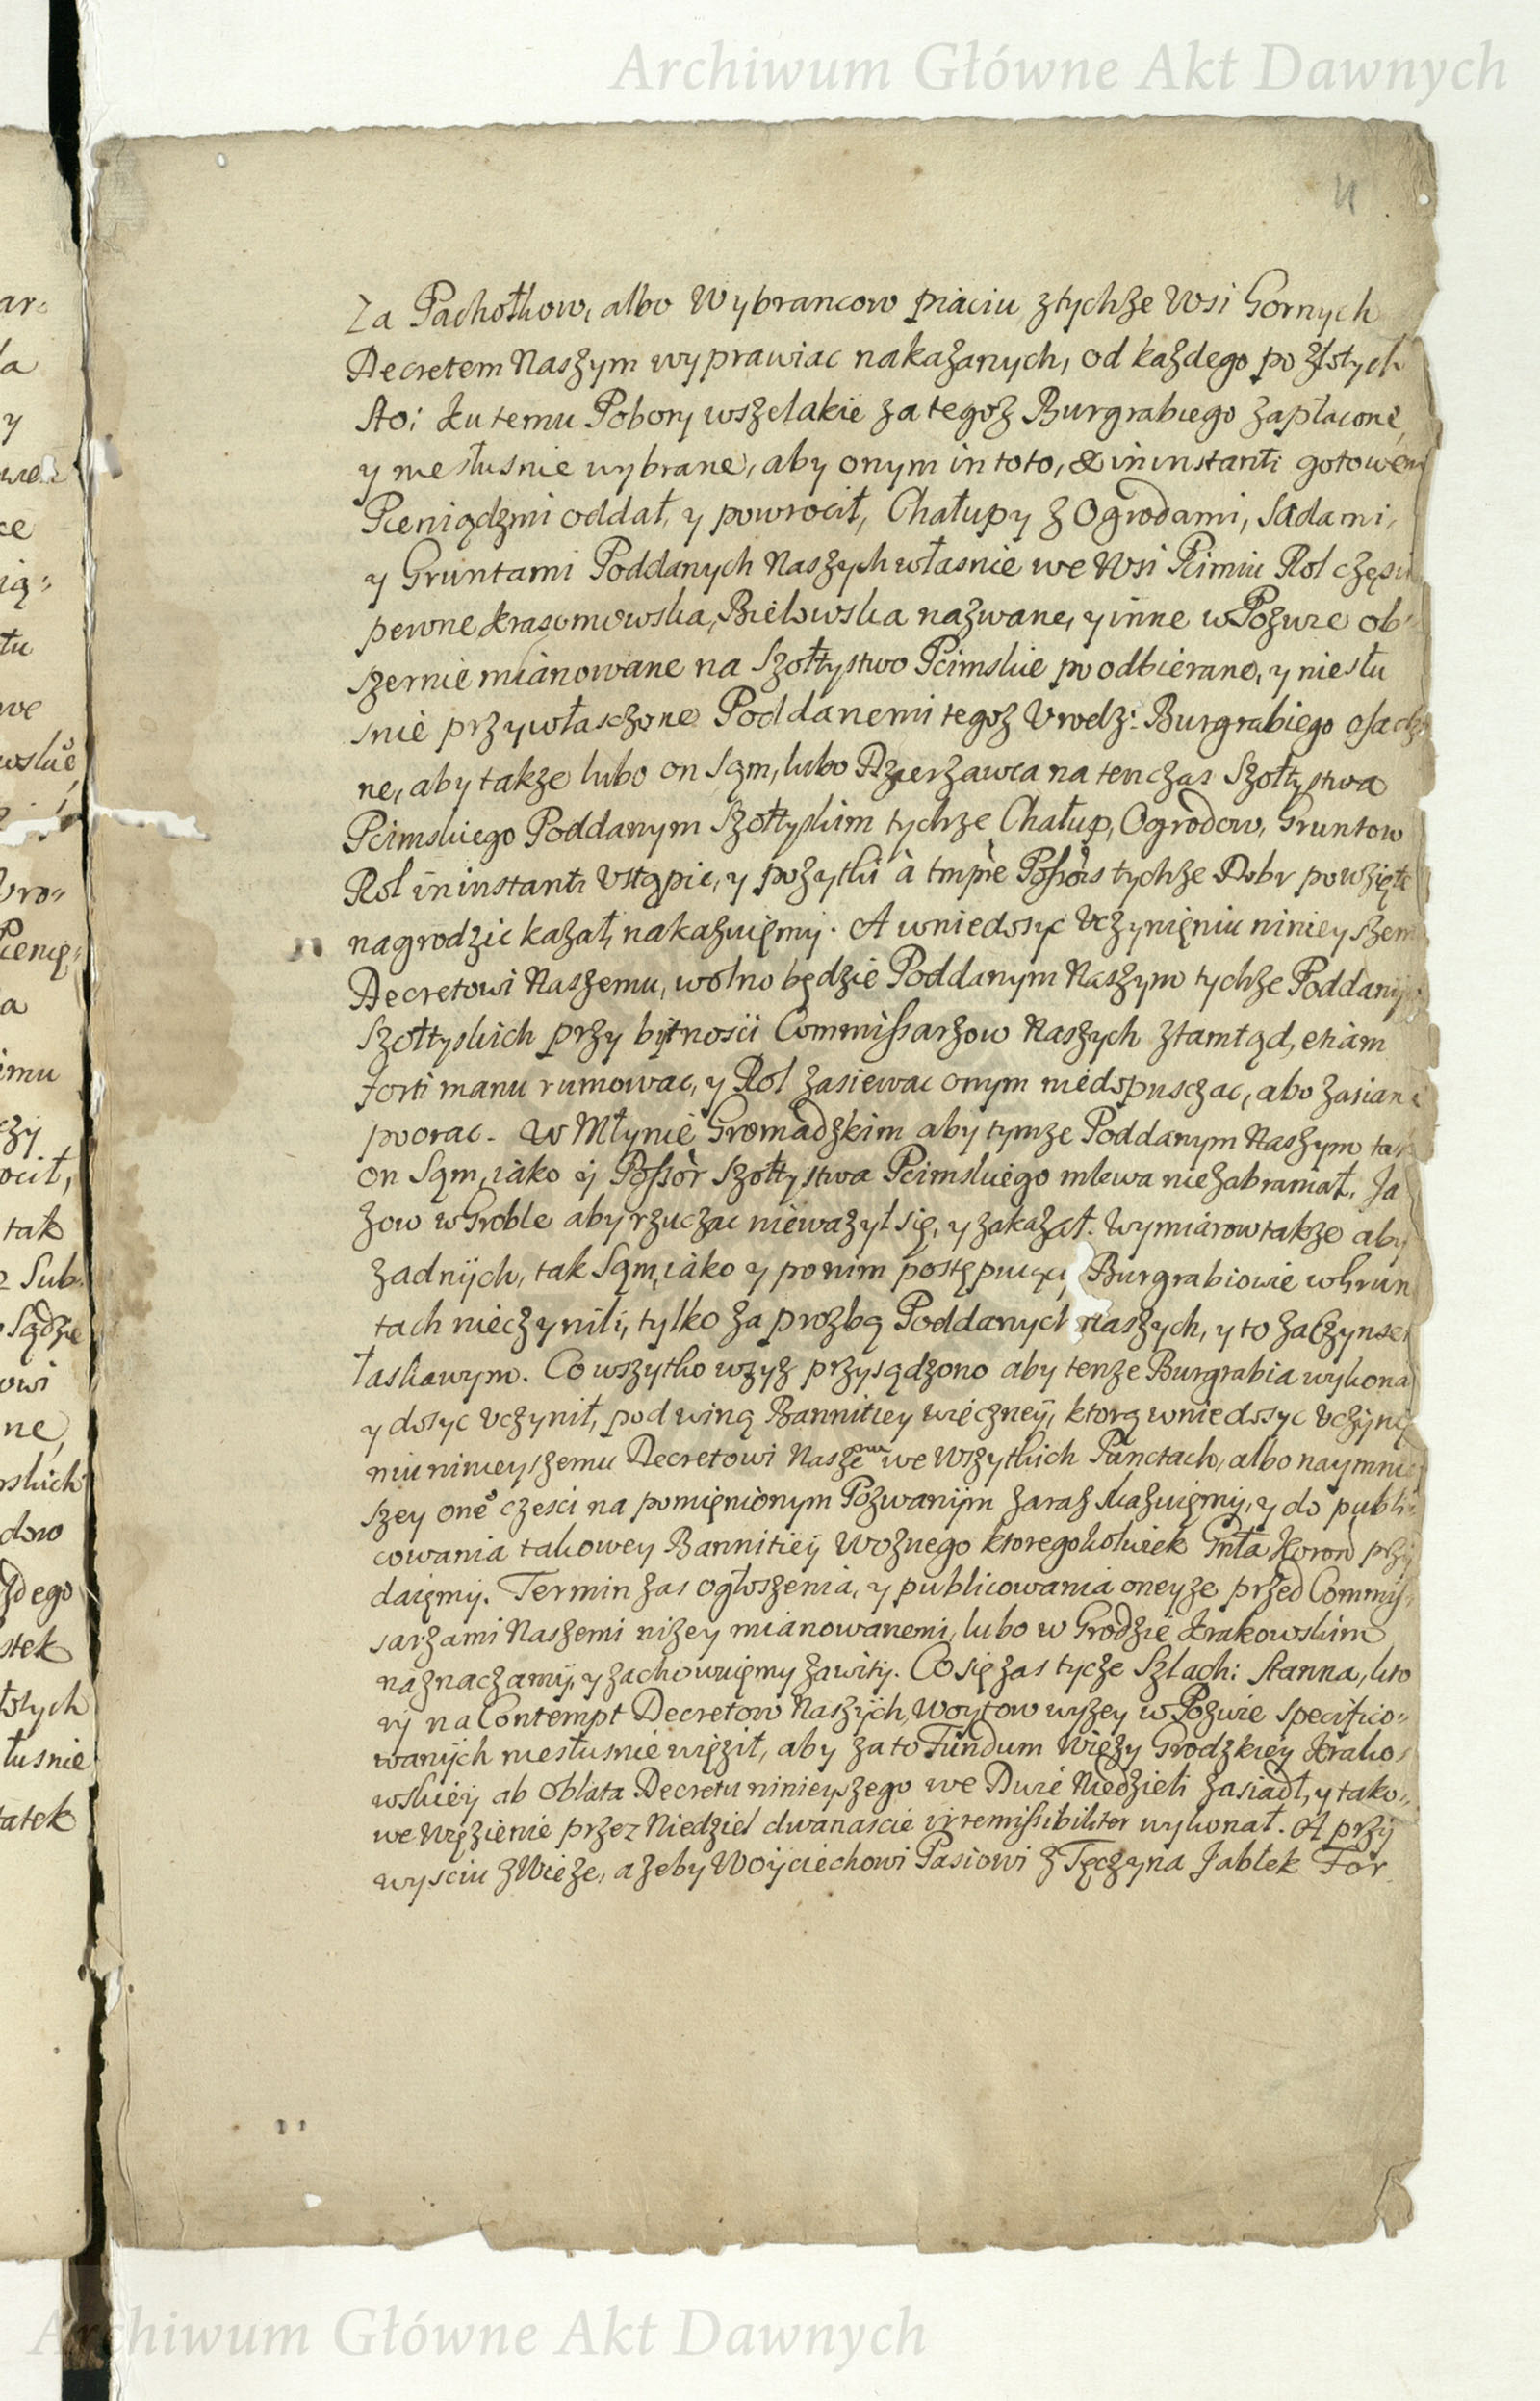 Archiwum Główne Akt Dawnych
Za Pachołkow, albo Wybrancow piąciu z tychże Wsi Gornych
Decretem Naszym wyprawiac nakazanych, od każdego po złotych
sto: ku temu Pobory wszelakie za tegoż Burgrabiego zapłacone,
y niesłusnie wybrane, aby onym in toto, & in instanti gotowem
Pieniądzmi oddał, y powrocił, Chałupy z Ogrodami, Sadami,
y Gruntami Poddanych Naszych własnie we Wsi Pcimiu Rol częsci
pewne Krasomowska, Bielowska nazwane, y inne w Pozwie ob-
szernie mianowane na Szołtystwo Pcimskie poodbierane, y niesłu
snie przywłasczone Poddanemi tegoż Vrodz: Burgrabiego osadzo
ne, aby także lubo on Sąm, lubo Dzierzawca na ten czas Szołtystwa
Pcimskiego Poddanym Szołtyskim tychże Chałup, Ogrodow, Gruntow
Rol in instanti Vstąpic, y pozytki à tmpre Possōris tychże Dobr powzięte
nagrodzic kazał, nakazuięmy. A w niedosyc Vczynięniu ninieyszemu
Decretowi Naszemu, wolno będzie Poddanym Naszym tychże Poddanych
Szołtyskich przy bytnosci Commissarzow Naszych ztamtąd, etiam
forti manu rumowac, y Rol zasiewac onym niedopusczac, abo zasiane
poorac. W Młynie Gromadzkim aby tymże Poddanym Naszym tak
on Sąm, iako y Possōr Szołtystwa Pcimskiego mlewa niezabraniał. Ja
zow w Groble aby rzuczac nieważył się, y zakazał. Wymiarow także aby
żadnych, tak Sąm, iako y po nim postępuiący Burgrabiowie w Grun
tach nieczynili, tylko za prozbą Poddanych naszych, y to za Czynszem
łaskawym. Co wszytko wzyż przysądzono aby tenże Burgrabia wykonał
y dosyc Vczynił, pod winą Bannitiey wieczney, ktorą w niedosyc Vczynię
niu ninieyszemu Decretowi Naszemu we Wszytkich Punctach, albo naymniey
szey onego czesci na pomięnionym Pozwanym zaraz skazuięmy, y do publi-
cowania takowey Bannitiey Woznego ktoregokolwiek Gnła Koron przy
daięmy. Termin zas ogłoszenia, y publicowania oneyże przed Commis-
sarzami Naszemi niżey mianowanemi, lubo w Grodzie Krakowskim
naznaczamy, y zachowuięmy zawity. Co się zas tycze Szlach: Stanna, kto
ry na Contempt Decretow Naszych, Woytow wyżey w Pozwie specifico-
wanych niesłusnie więził, aby za to Fundum Wieży Grodzkiey Krako-
wskiey ab Oblata Decretu ninieyszego we Dwie Niedzieli zasiadł, y tako-
we więzienie przez Niedziel dwanascie irremissibiliter wykonał. A przy
wysciu z Wieże, ażeby Woyciechowi Pasiowi z Tęczyna Jabłek For
Archiwum Główne Akt Dawnych